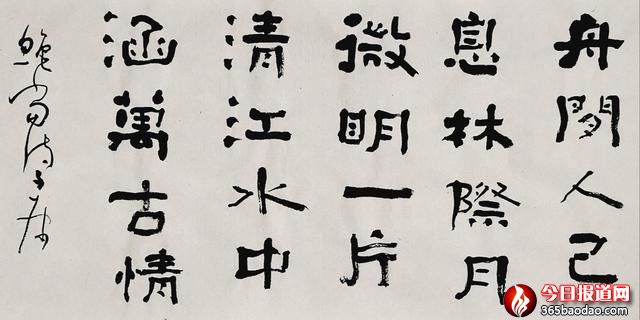 舟閒人已
息林際月
微明一片
清江水中
涵萬古情
鮑當詩
今日报道网
365baodao.com